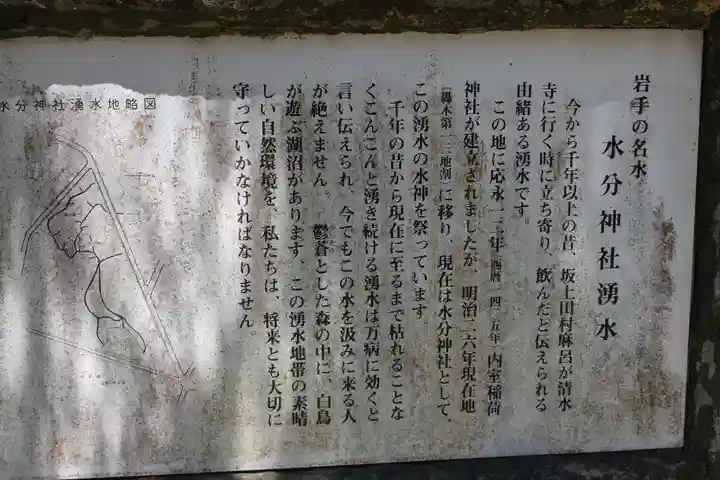 岩手の名水
水分神社湧水
今から千年以上の昔、坂上田村麻呂が清水
寺に行く時に立ち寄り、飲んだと伝えられる
由緒ある湧水です。
この地に応永二二年(西暦一四一五年)内室稲荷
神社が建立されましたが、明治二六年現在地
に移り、現在は水分神社として、
この湧水の水神を祭っています。
千年の昔から現在に至るまで枯れることな
くこんこんと湧き続ける湧水は万病に効くと
言い伝えられ、今でもこの水を汲みに来る人
が絶えません 鬱蒼とした森の中に、白鳥
が遊ぶ湖沼があります、この湧水地帯の素晴
しい自然環境を、私たちは、将来とも大切に
守っていかなければなりません。
水分神社湧水地略図